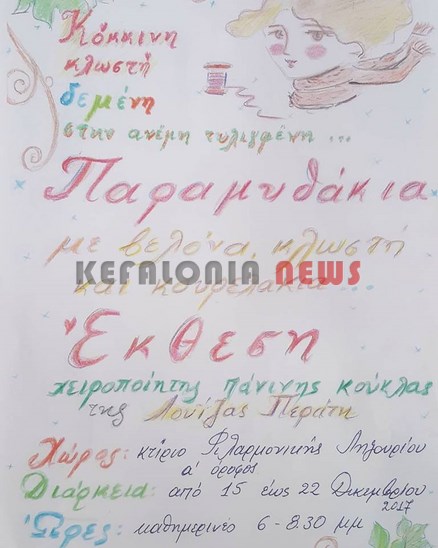 Κόκκινη
κλωστή
δεμένη
στην ανέμη τυλιγμένη ...
Παραμυθάκια
με βελόνα, κλωστή
KEFALONIA NEWS
και κουρελάκια ...
Έκθεση
χειροποίητης πάνινης κούκλας
της Λουίζας Περάτη
Χώρος: κτίριο Φιλαρμονικής Ληξουρίου
α' όροφος
Διάρκεια: από 15 έως 22 Δεκεμβρίου
2017
Ώρες: καθημερινές 6 - 8.30 μμ